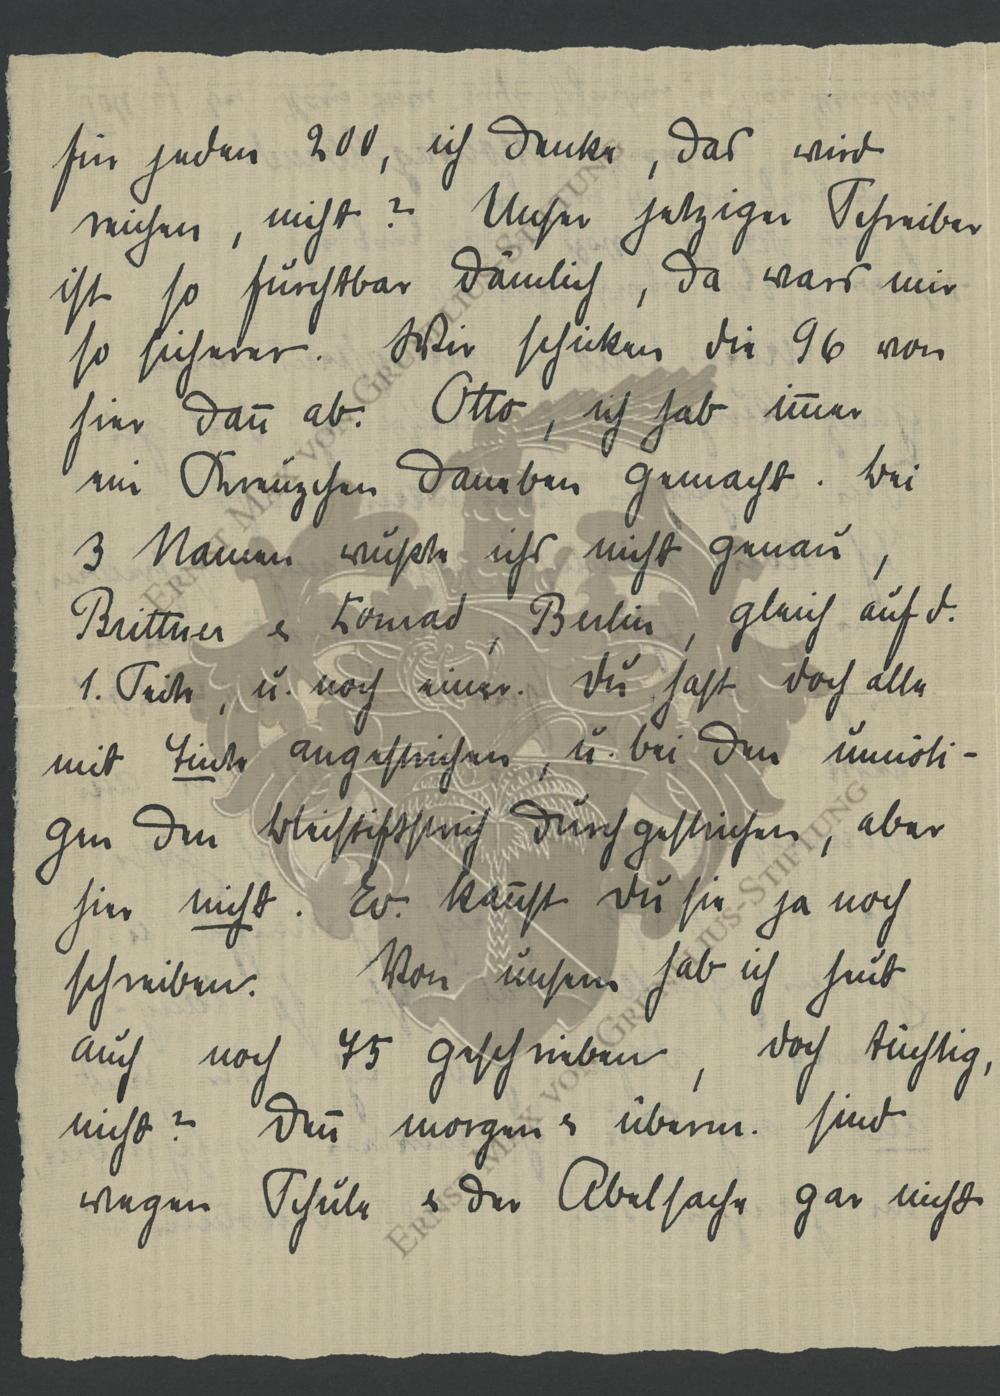 für jeden 200, ich denke, das wird
reichen, nicht? Unser jetziger Schreiber
ist so furchtbar dämlich, da wars mir
so sicherer. Wir schicken die 96 von
hier dan̅ ab. Otto, ich hab im̅er
ein Kreuzchen daneben gemacht. Bei
3 Namen wußte ichs nicht genau,
Brittner & Conrad, Berlin, gleich auf d.
1. Seite, u. noch einer. Du hast doch alle
mit Tinte angestrichen, u. bei den unnöti-
gen den Bleistiftstrich durchgestrichen, aber
hier nicht. Ev. kan̅st Du sie ja noch
schreiben. Von unsern hab ich heut
auch noch 75 geschrieben, doch tüchtig,
nicht? Den̅ morgen & überm. sind
wegen Schule & der Abelsache gar nicht
ERNST MAX VON GRUNELIUS-STIFTUNG
ERNST MAX VON GRUNELIUS-STIFTUNG